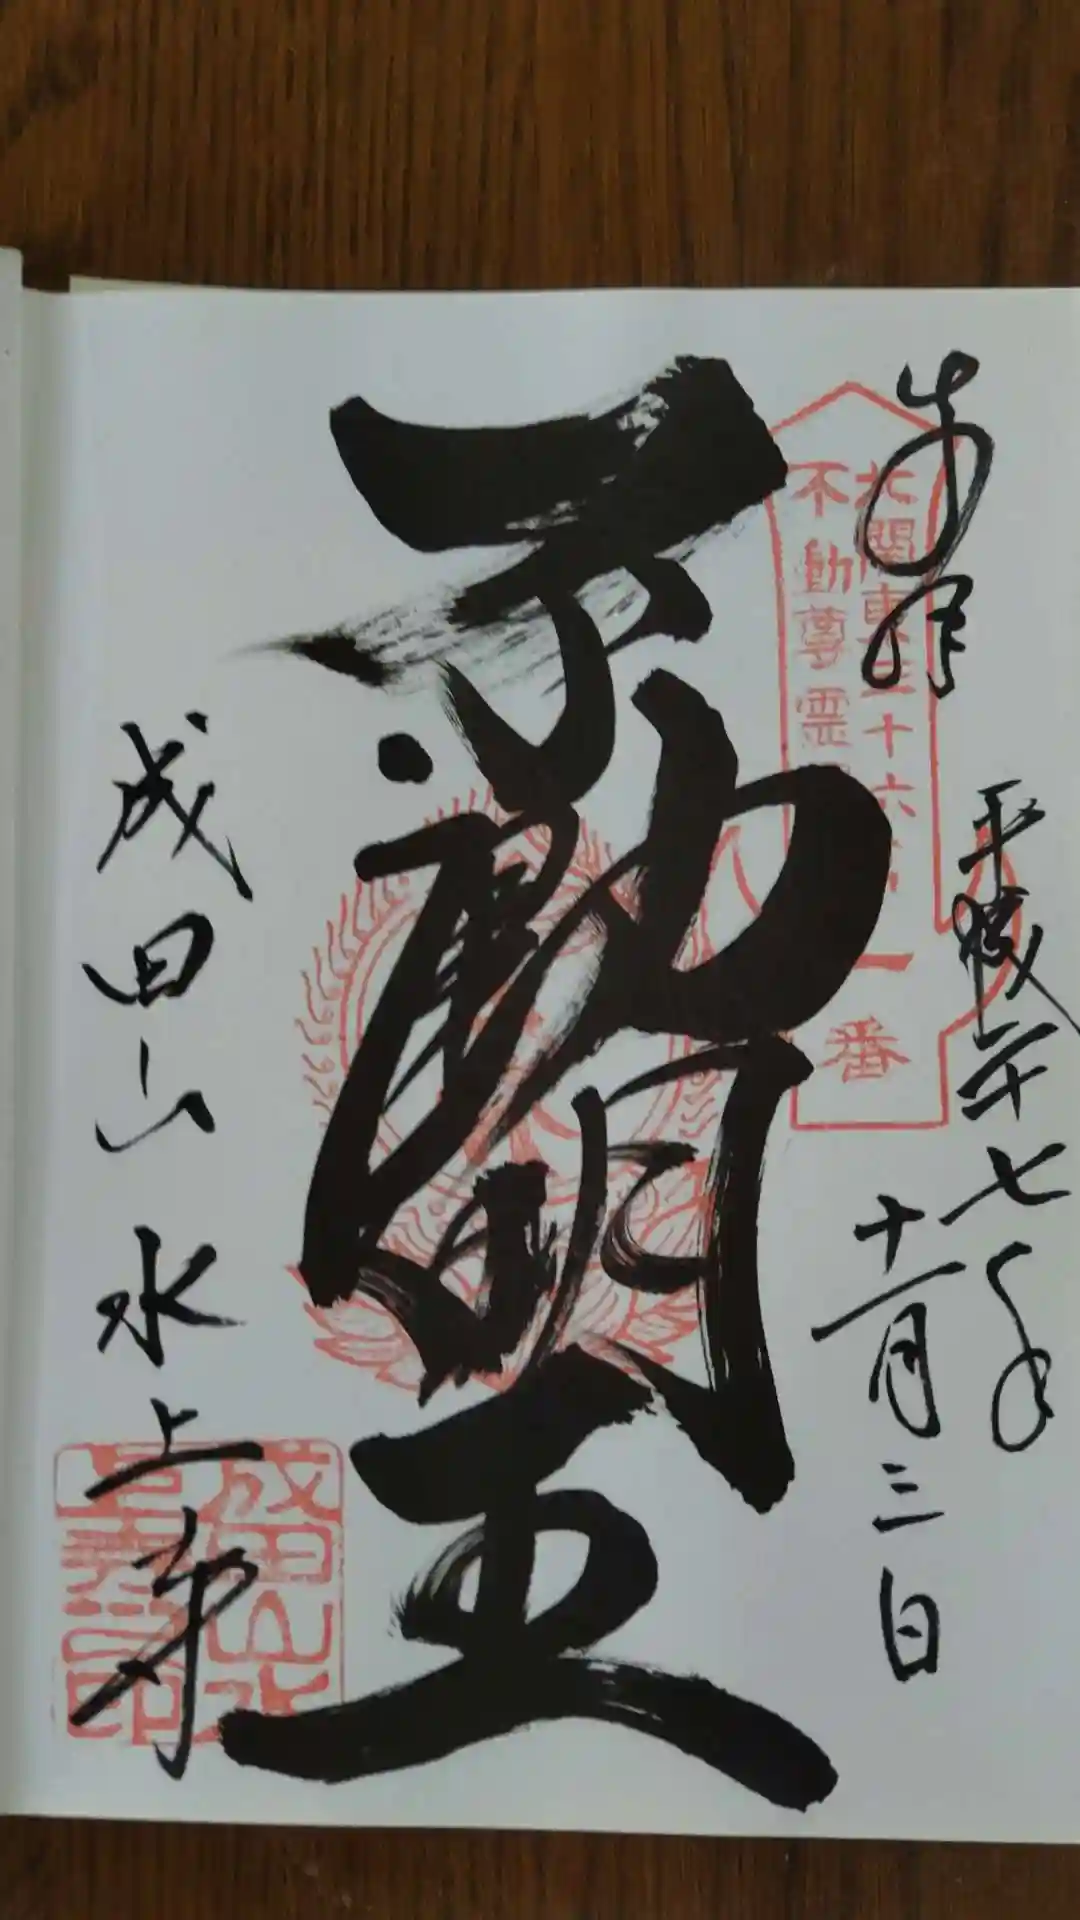 奉拝
平成二十七年
十一月三日
北関東三十六
不動尊霊
一番
不動明王
成田山水上寺
成田山水
上寺印